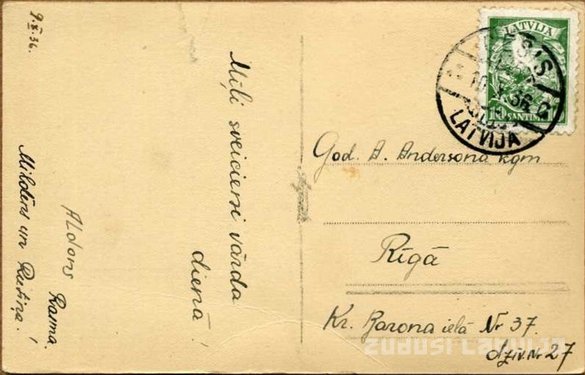 9.X.36.
Mīļi sveicieni vārda
dienā!
Aldons Rasma.
Mildiņa un Rutiņa!
LATVIJA
SANTIMI
LATVIJA
God. A. Andersona kgm
Rīgā
Kr. Barona ielā Nr 37.
dzīv. Nr 27
ZUDUSĪ LATVIJA